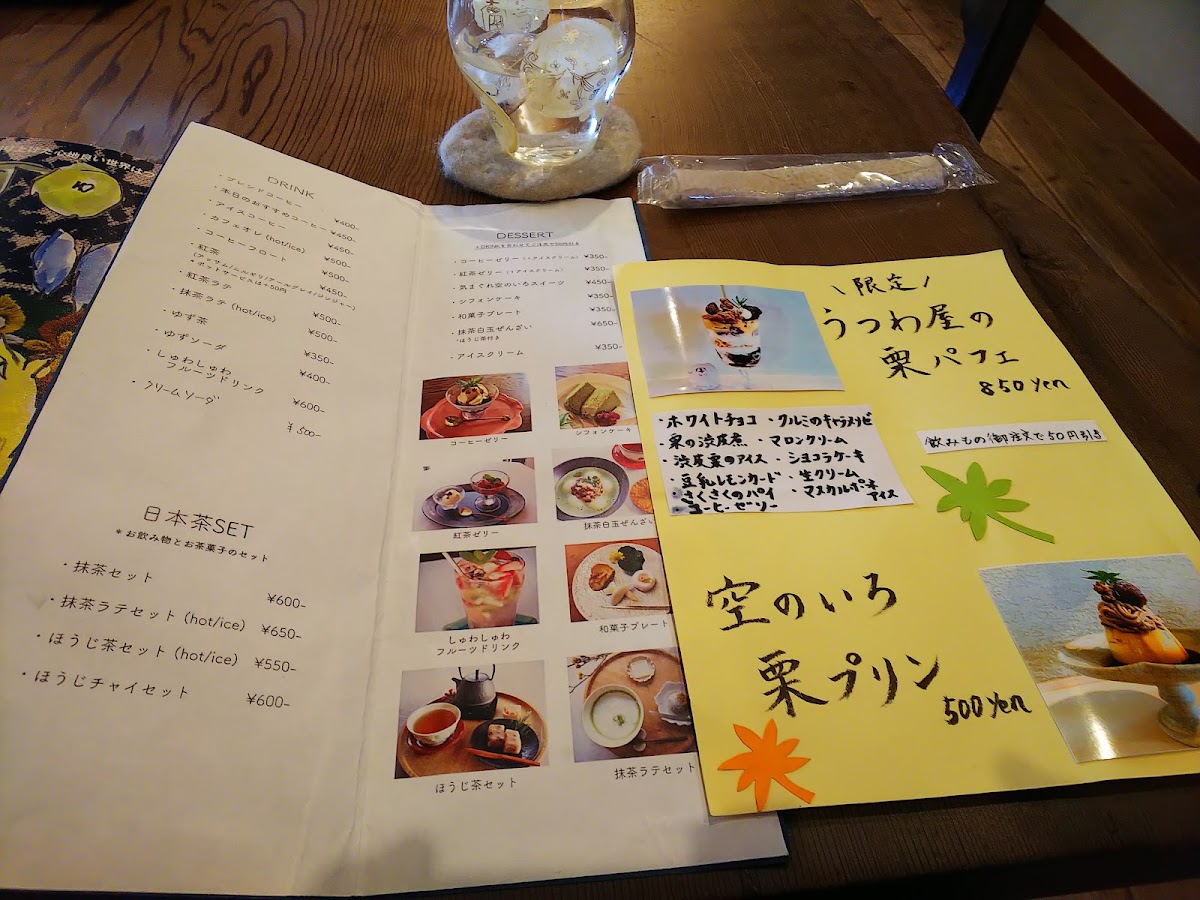 心地良い世界に
DRINK
・ブレンドコーヒー ¥400-
・本日のおすすめコーヒー ¥450-
・アイスコーヒー ¥450-
・カフェオレ (hot/ice) ¥500-
・コーヒーフロート ¥500-
・紅茶 ¥450-
(アッサム/ニルギリ/アールグレイ/ジンジャー)
・ポットサービスは+50円
・紅茶ラテ ¥500-
・抹茶ラテ (hot/ice) ¥500-
・ゆず茶 ¥350-
・ゆずソーダ ¥400-
・しゅわしゅわ
フルーツドリンク ¥600-
・クリームソーダ ¥500-
日本茶SET
*お飲み物とお茶菓子のセット
・抹茶セット ¥600-
・抹茶ラテセット (hot/ice) ¥650-
・ほうじ茶セット (hot/ice) ¥550-
・ほうじチャイセット ¥600-
DESSERT
・コーヒーゼリー (+アイスクリーム) ¥350-
・紅茶ゼリー (+アイスクリーム) ¥350-
・気まぐれ空のいろスイーツ ¥450-
・シフォンケーキ ¥350-
・和菓子プレート ¥350-
・抹茶白玉ぜんざい ¥650-
・ほうじ茶付き
・アイスクリーム ¥350-
コーヒーゼリー
シフォンケーキ
紅茶ゼリー
抹茶白玉ぜんざい
しゅわしゅわ
フルーツドリンク
和菓子プレート
ほうじ茶セット
抹茶ラテセット
\限定/
うつわ屋の
栗パフェ
850yen
飲みもの御注文で50円引き
・ホワイトチョコ ・クルミのキャラメリゼ
・栗の渋皮煮 ・マロンクリーム
・渋皮栗のアイス ・ショコラケーキ
・豆乳レモンカード ・生クリーム
・さくさくのパイ ・マスカルポーネ
アイス
・コーヒーゼリー
空のいろ
栗プリン
500yen